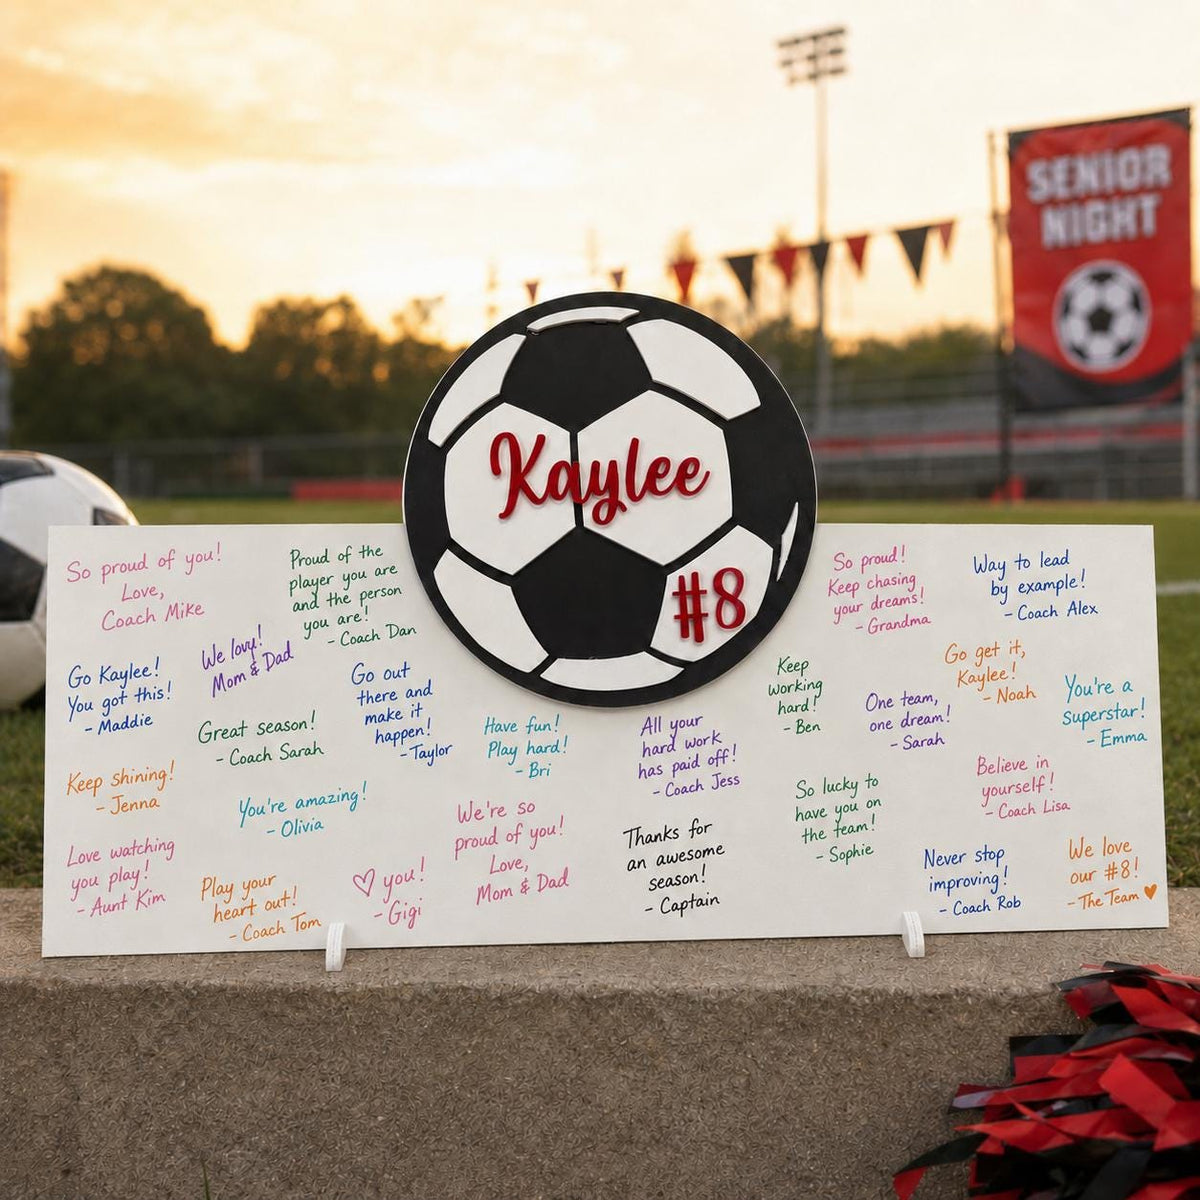 SENIOR
NIGHT
Kaylee
#8
So proud of you!
Love,
Coach Mike
Proud of the
player you are
and the person
you are!
- Coach Dan
We lovy!
Mom & Dad
Go Kaylee!
You got this!
- Maddie
Go out
there and
make it
happen!
-Taylor
Great season!
- Coach Sarah
Have fun!
Play hard!
- Bri
Keep shining!
- Jenna
You're amazing!
- Olivia
Love watching
you play!
- Aunt Kim
Play your
heart out!
- Coach Tom
♡ you!
- Gigi
We're so
proud of you!
Love,
Mom & Dad
All your
hard work
has paid off!
- Coach Jess
Thanks for
an awesome
season!
- Captain
So proud!
Keep chasing
your dreams!
- Grandma
Way to lead
by example!
- Coach Alex
Keep
working
hard!
- Ben
One team,
one dream!
- Sarah
Go get it,
Kaylee!
- Noah
You're a
superstar!
- Emma
So lucky to
have you on
the team!
- Sophie
Believe in
yourself!
- Coach Lisa
Never stop
improving!
- Coach Rob
We love
our #8!
- The Team ♥